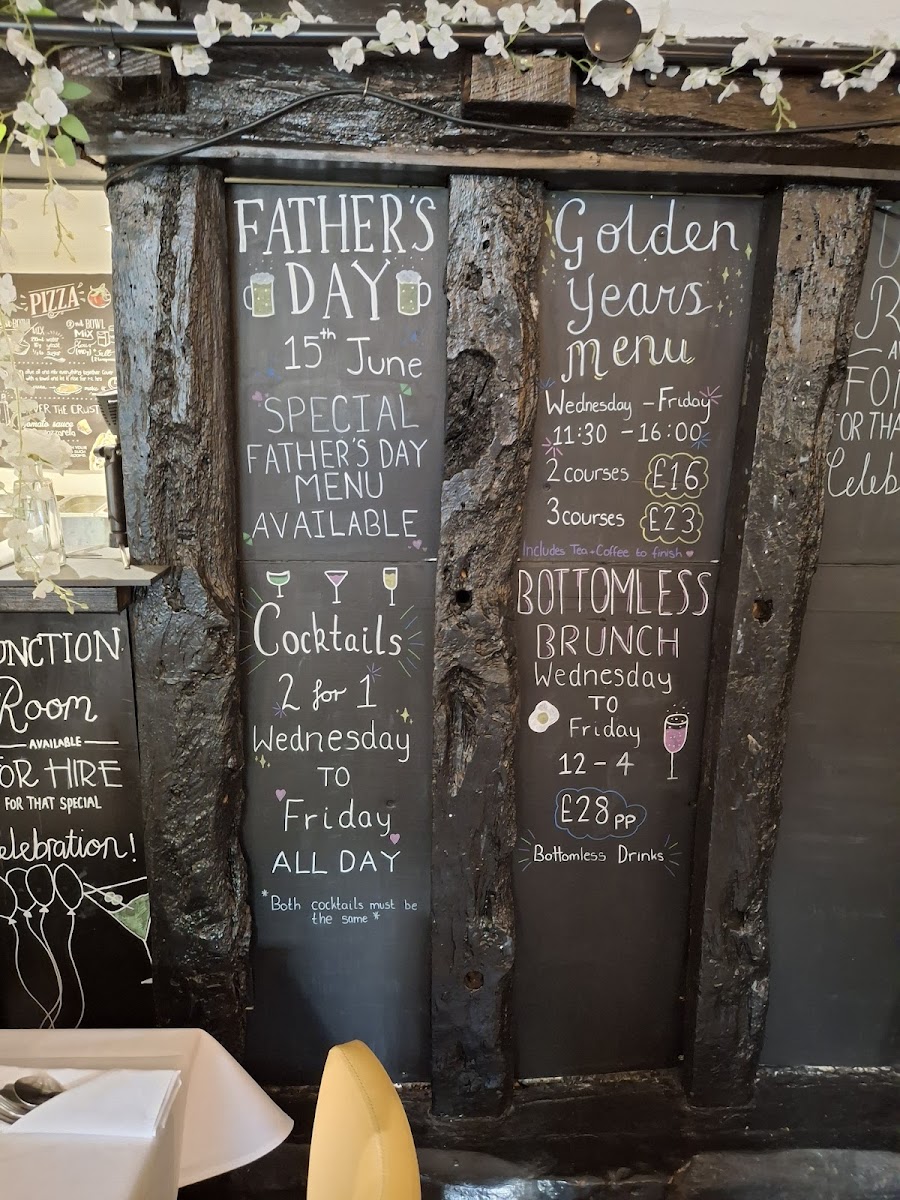 FATHER'S
DAY
15th June
SPECIAL
FATHER'S DAY
MENU
AVAILABLE
Cocktails
2 for 1
Wednesday
TO
Friday
ALL DAY
*Both cocktails must be
the same*
Golden
Years
menu
Wednesday - Friday
11:30 - 16:00
2 courses £16
3 courses £23
Includes Tea + Coffee to finish
BOTTOMLESS
BRUNCH
Wednesday
TO
Friday
12 - 4
£28 PP
Bottomless Drinks
PIZZA
BOWL
MIX
BOWL
MIX
THE CRUST
sauce
UNCTION
Room
AVAILABLE
OR HIRE
FOR THAT SPECIAL
elebration!
R
FO
OR THA
Celeb